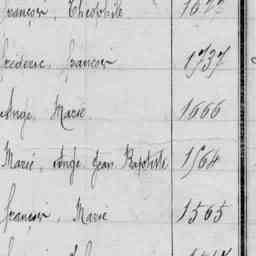 françois, Théophile 1677
frédéric, françois 1737
Ange, Marie 1666
Marie, Ange Jean Baptiste 1564
françois, Marie 1565